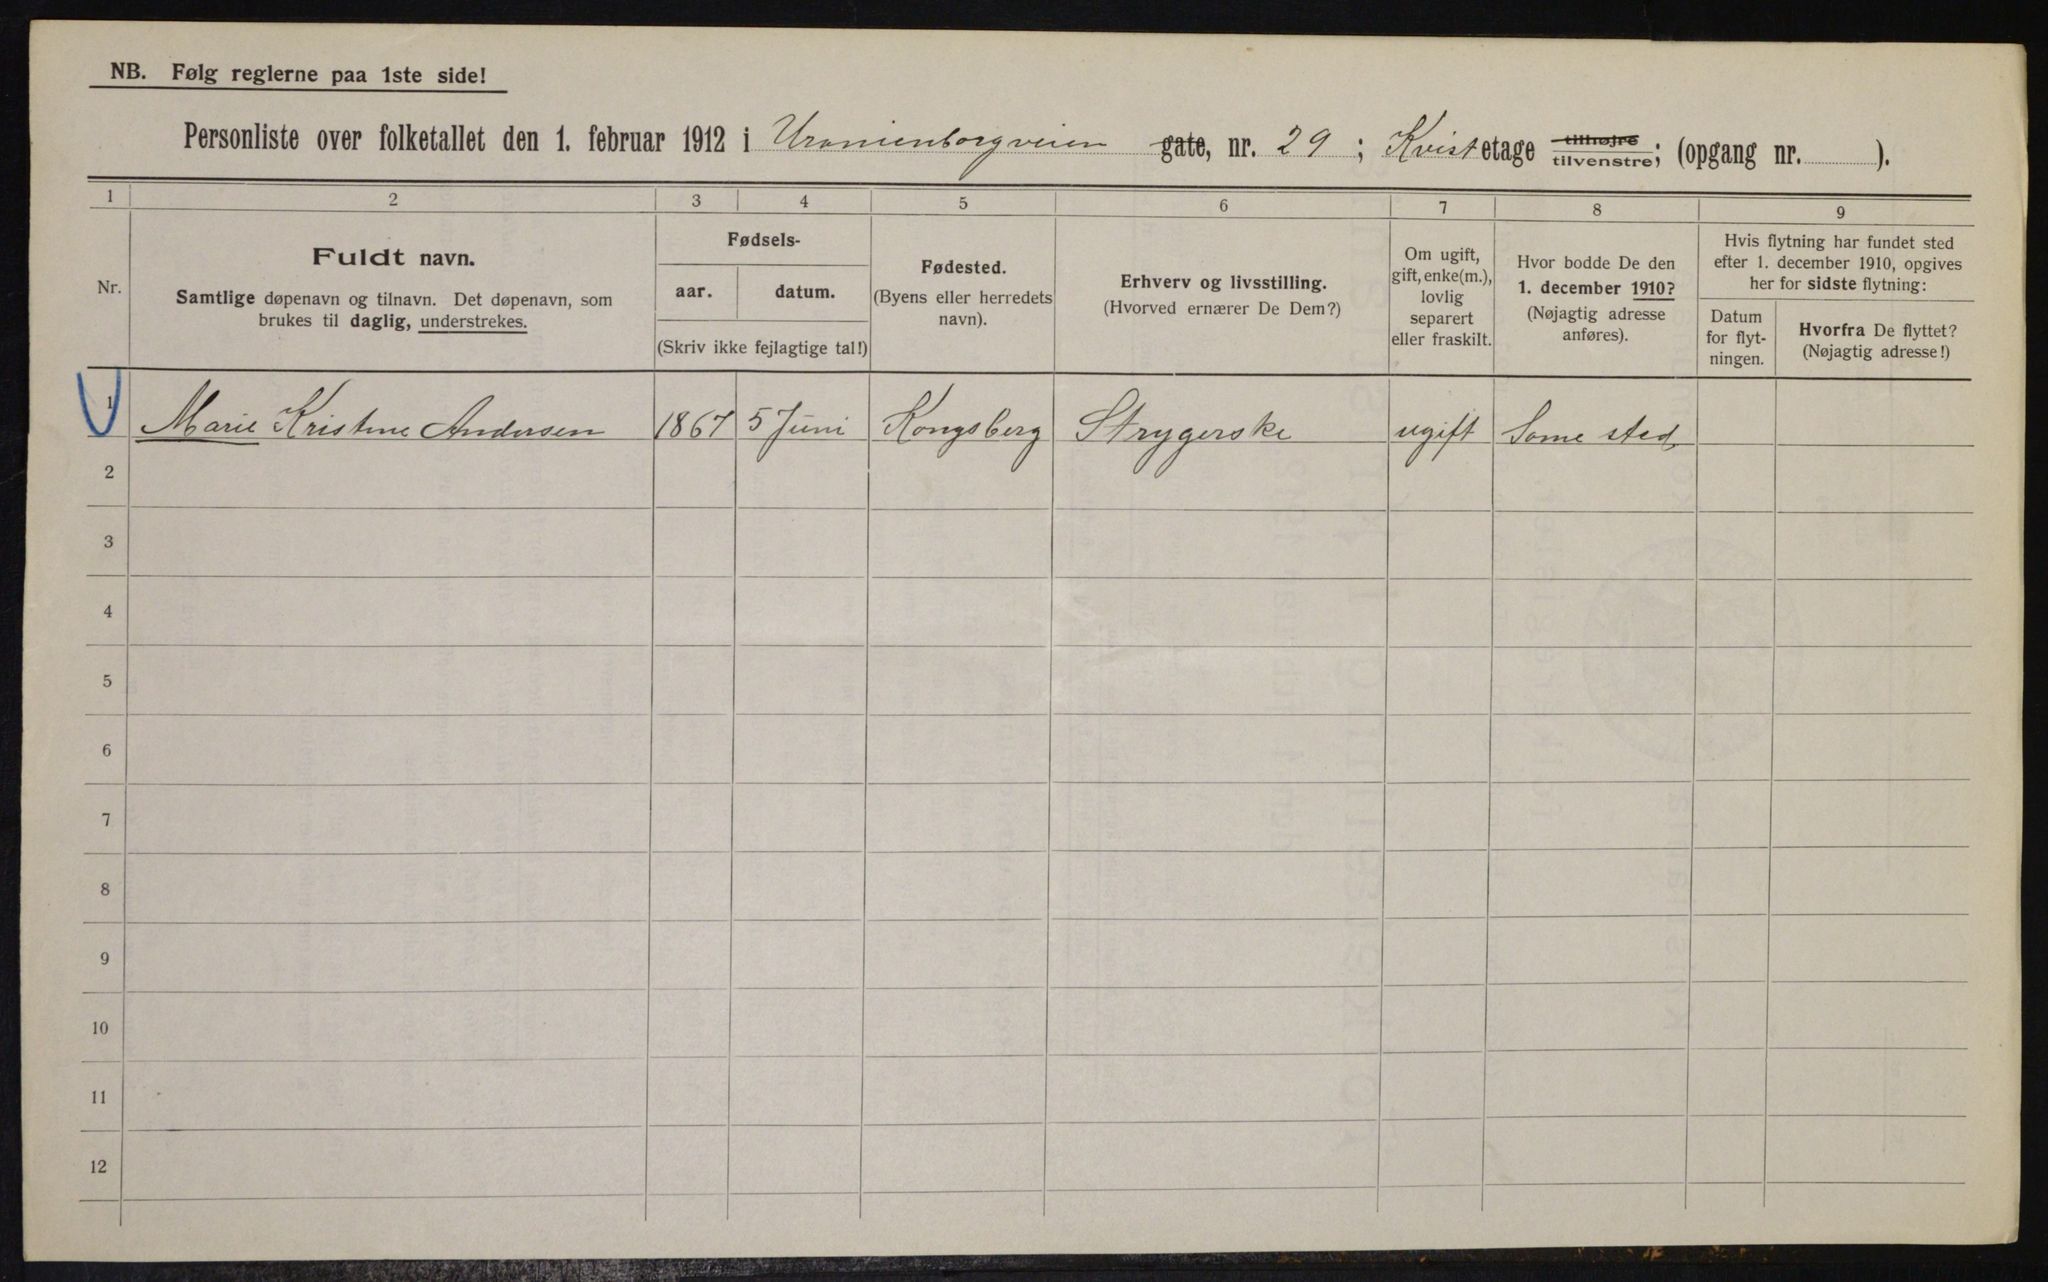 NB. Følg reglerne paa 1ste side!
Personliste over folketallet den 1. februar 1912 i Uranienborgveien gate, nr. 29; Kvist etage tilhøjre tilvenstre; (opgang nr. ).
1 2 3 4 5 6 7 8 9
Nr.
Fuldt navn.
Samtlige døpenavn og tilnavn. Det døpenavn, som
brukes til daglig, understrekes.
Fødsels-
aar. datum.
(Skriv ikke fejlagtige tal!)
Fødested.
(Byens eller herredets
navn).
Erhverv og livsstilling.
(Hvorved ernærer De Dem?)
Om ugift,
gift, enke(m.),
lovlig
separert
eller fraskilt.
Hvor bodde De den
1. december 1910?
(Nøjagtig adresse
anføres).
Hvis flytning har fundet sted
efter 1. december 1910, opgives
her for sidste flytning:
Datum
for flyt-
ningen.
Hvorfra De flyttet?
(Nøjagtig adresse!)
1 Marie Kristine Andersen 1867 5 Juni Kongsberg Strygerske ugift Same sted
2
3
4
5
6
7
8
9
10
11
12